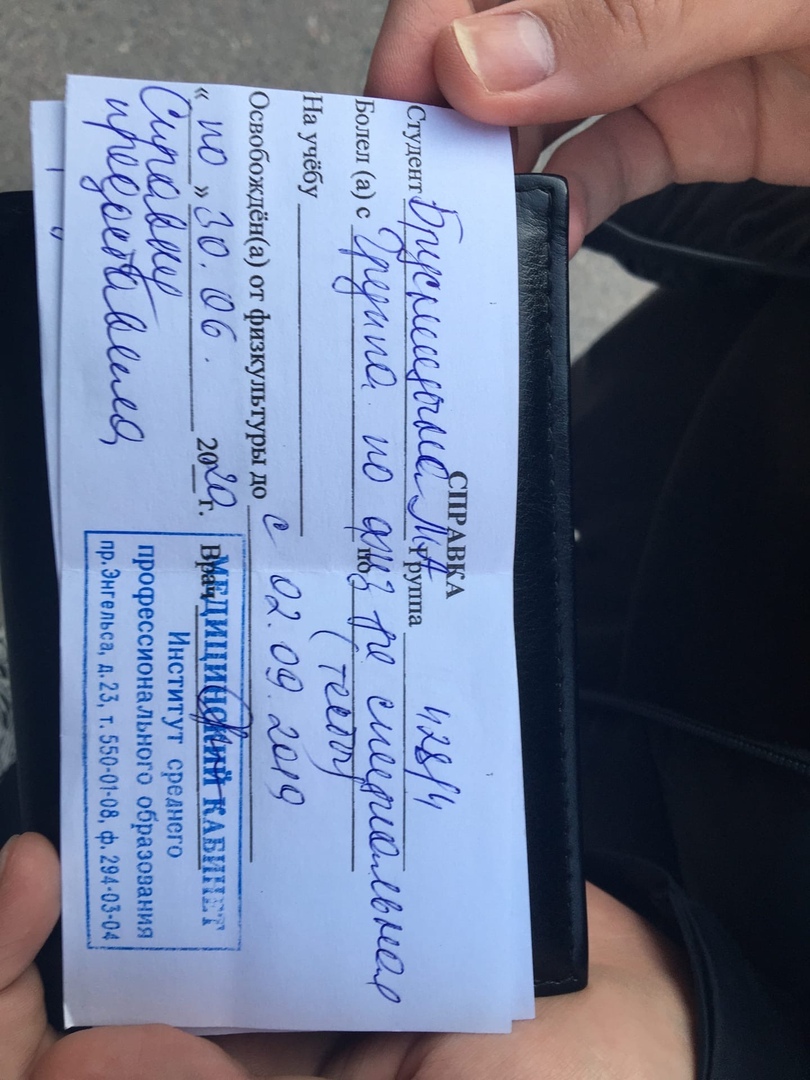 СПРАВКА
Студент Группа 428/4
Болел (а) с Группа по физ-ре специальная
по (тесты)
На учёбу
Освобождён(а) от физкультуры до с 02.09.2019
« по » 30.06. 2020 г. Врач
Справку
предоставила
МЕДИЦИНСКИЙ КАБИНЕТ
Институт среднего
профессионального образования
пр.Энгельса, д.23, т. 550-01-08, ф. 294-03-04